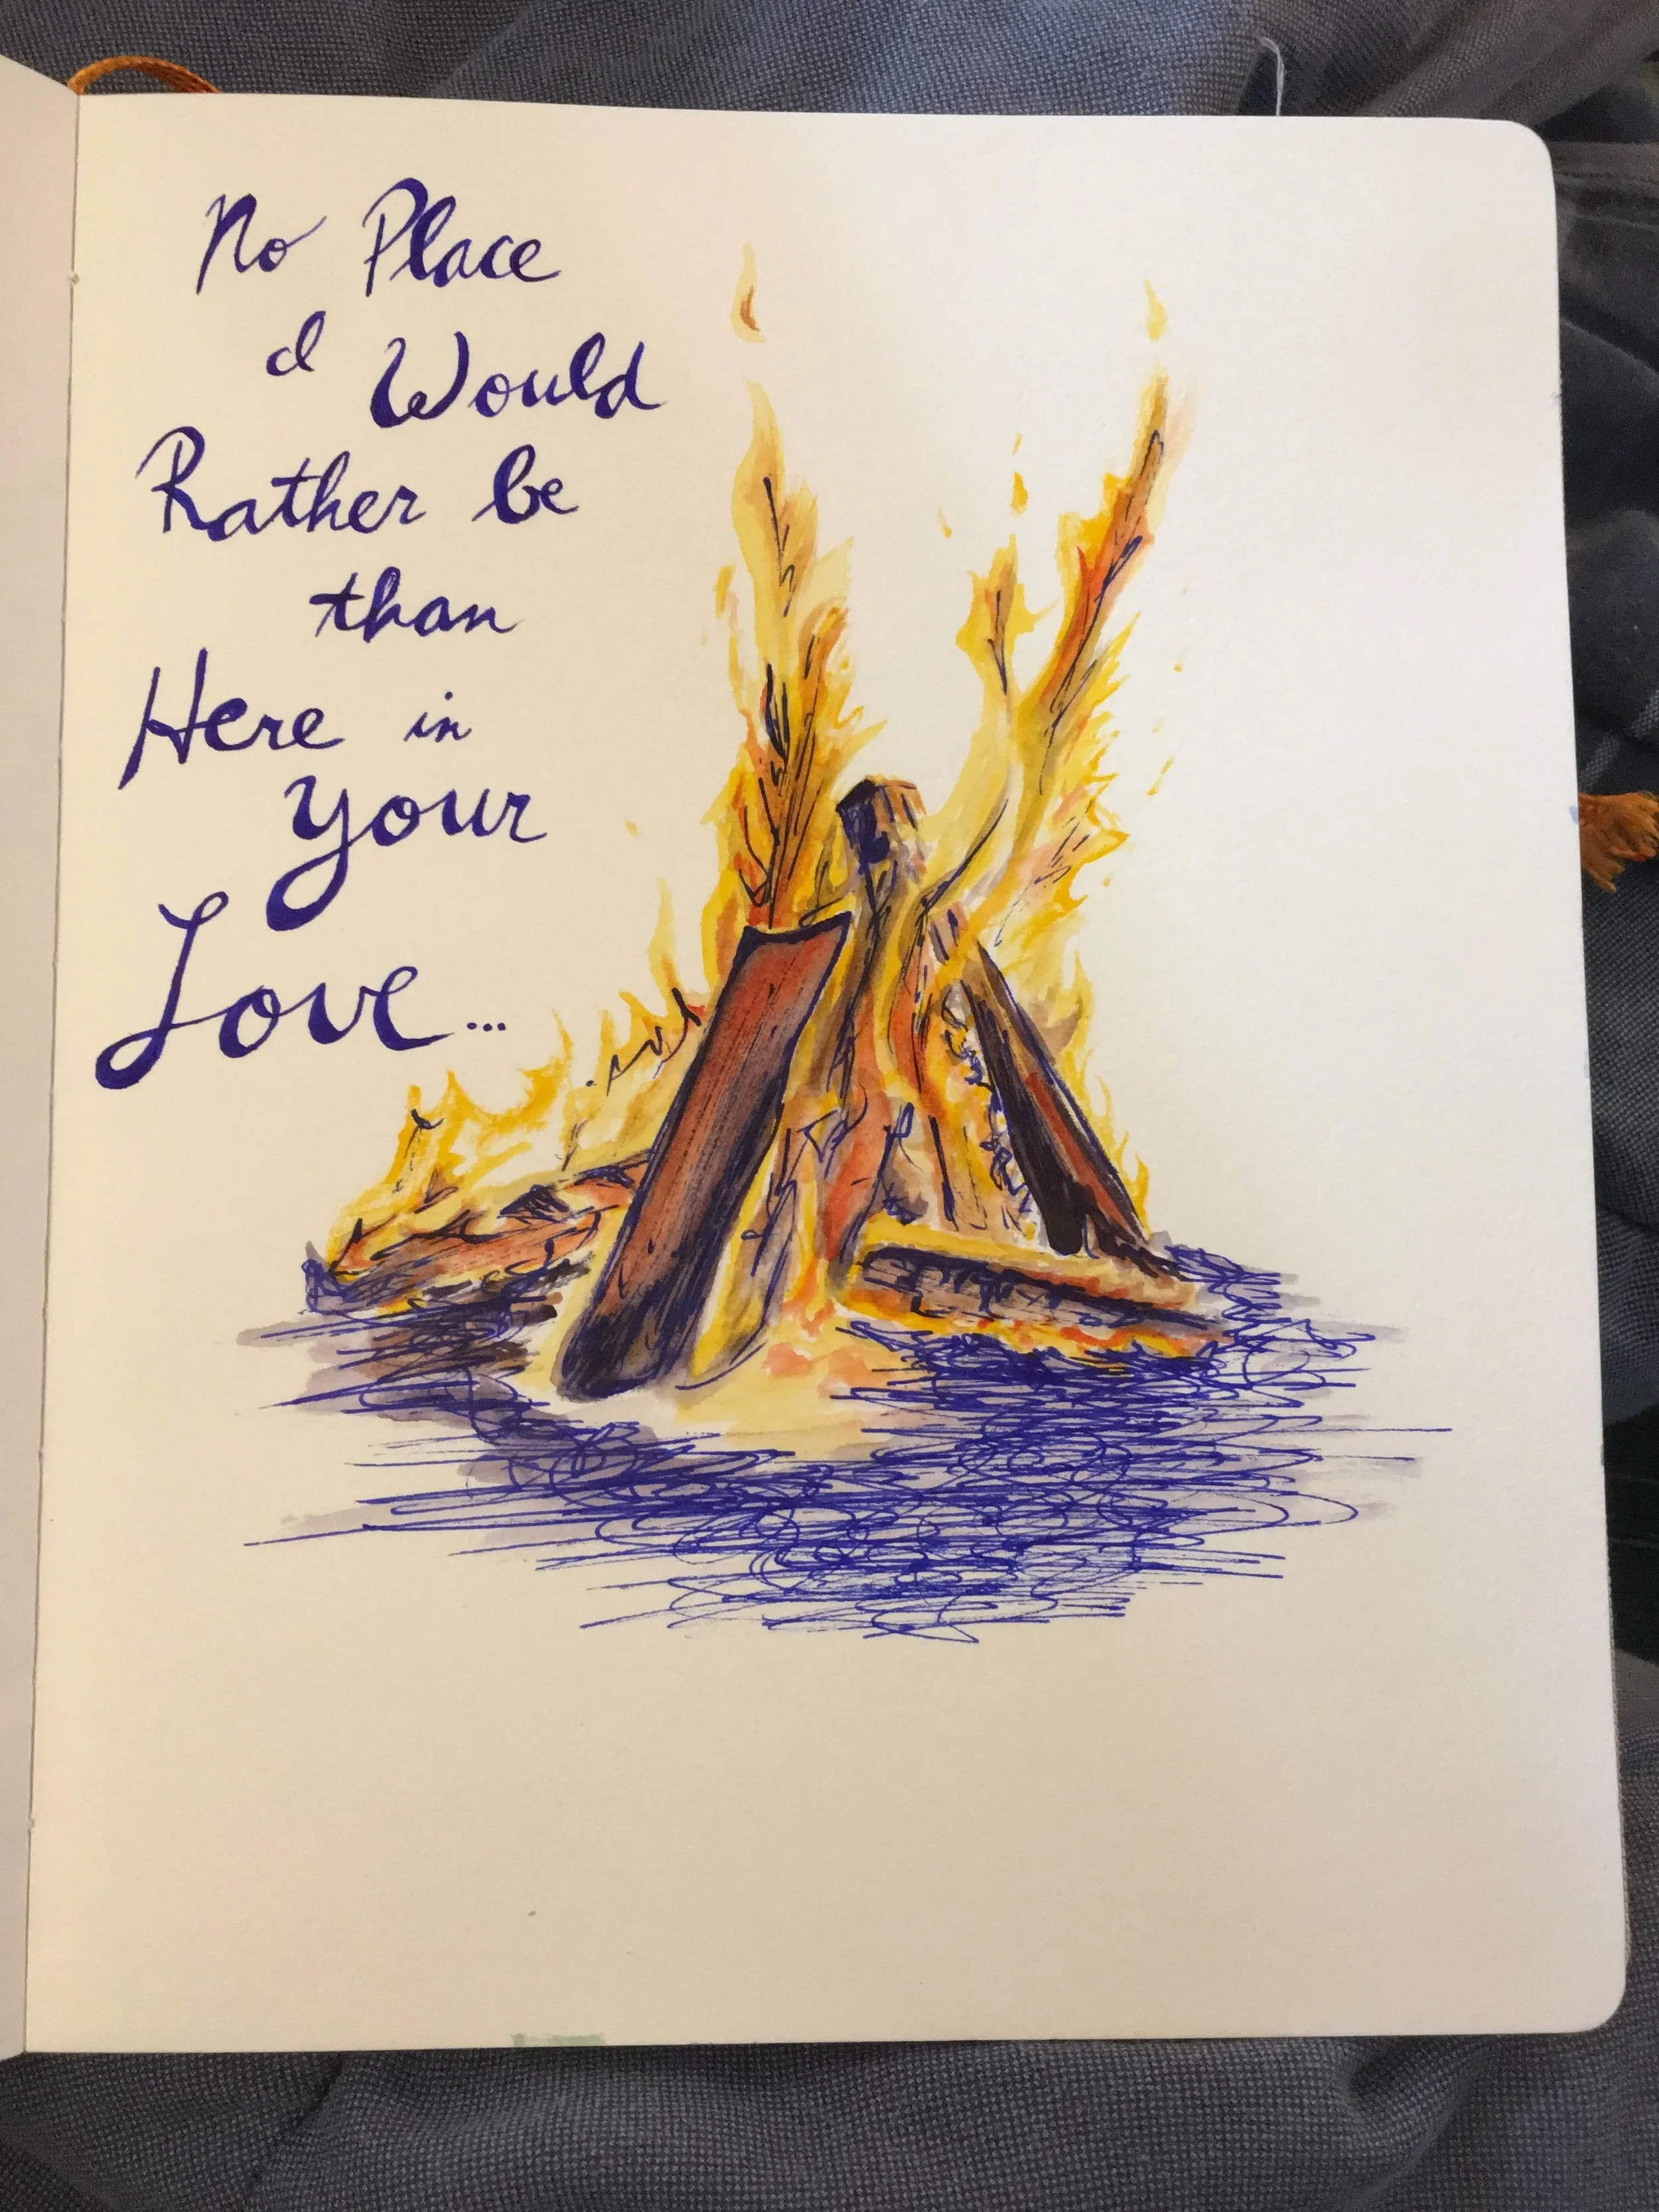 No Place
I Would
Rather be
than
Here in
your
Love...